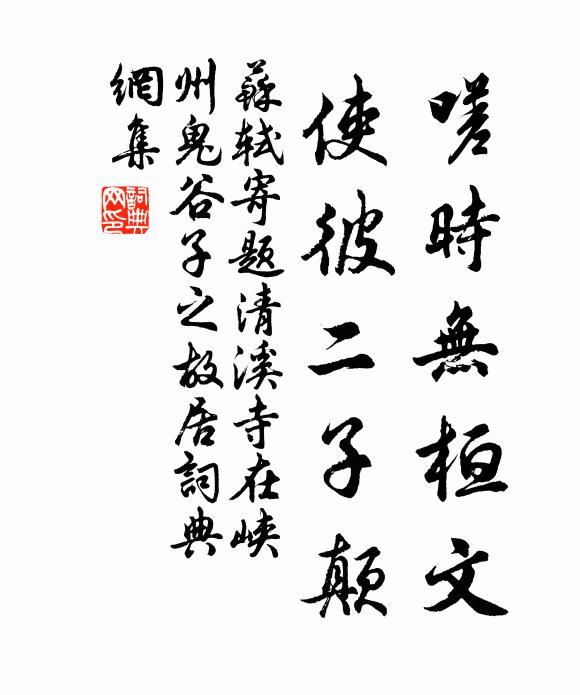 嗟時無桓文
使彼二子顛
蘇軾寄題清溪寺在峽
州鬼谷子之故居詞典
網集
詞典
网印